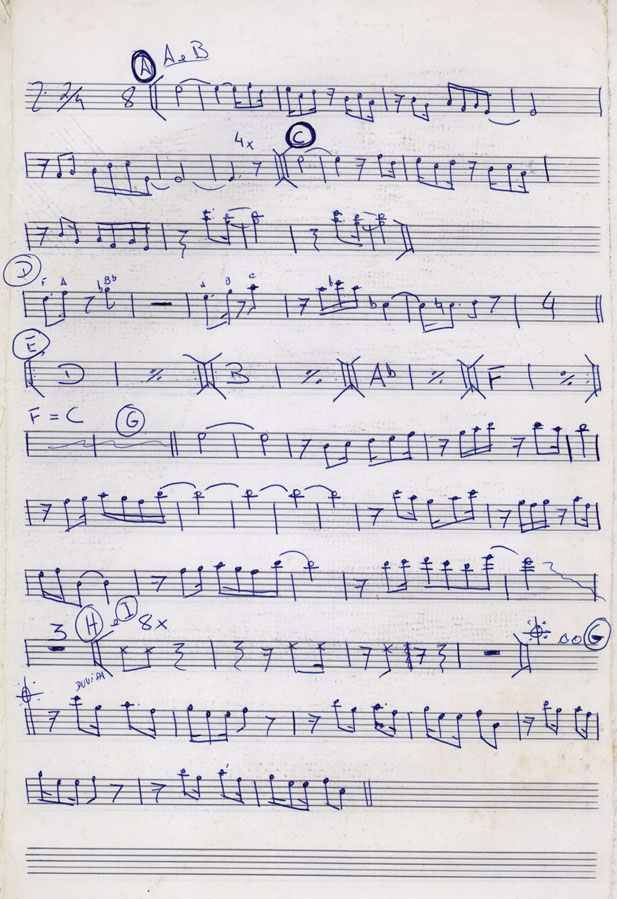 A A e B
2/4 8
4x C
D
F A Bb A B C
4
E
D B Ab F
F = C G
3 H e I 8x ao G
DUVIDA